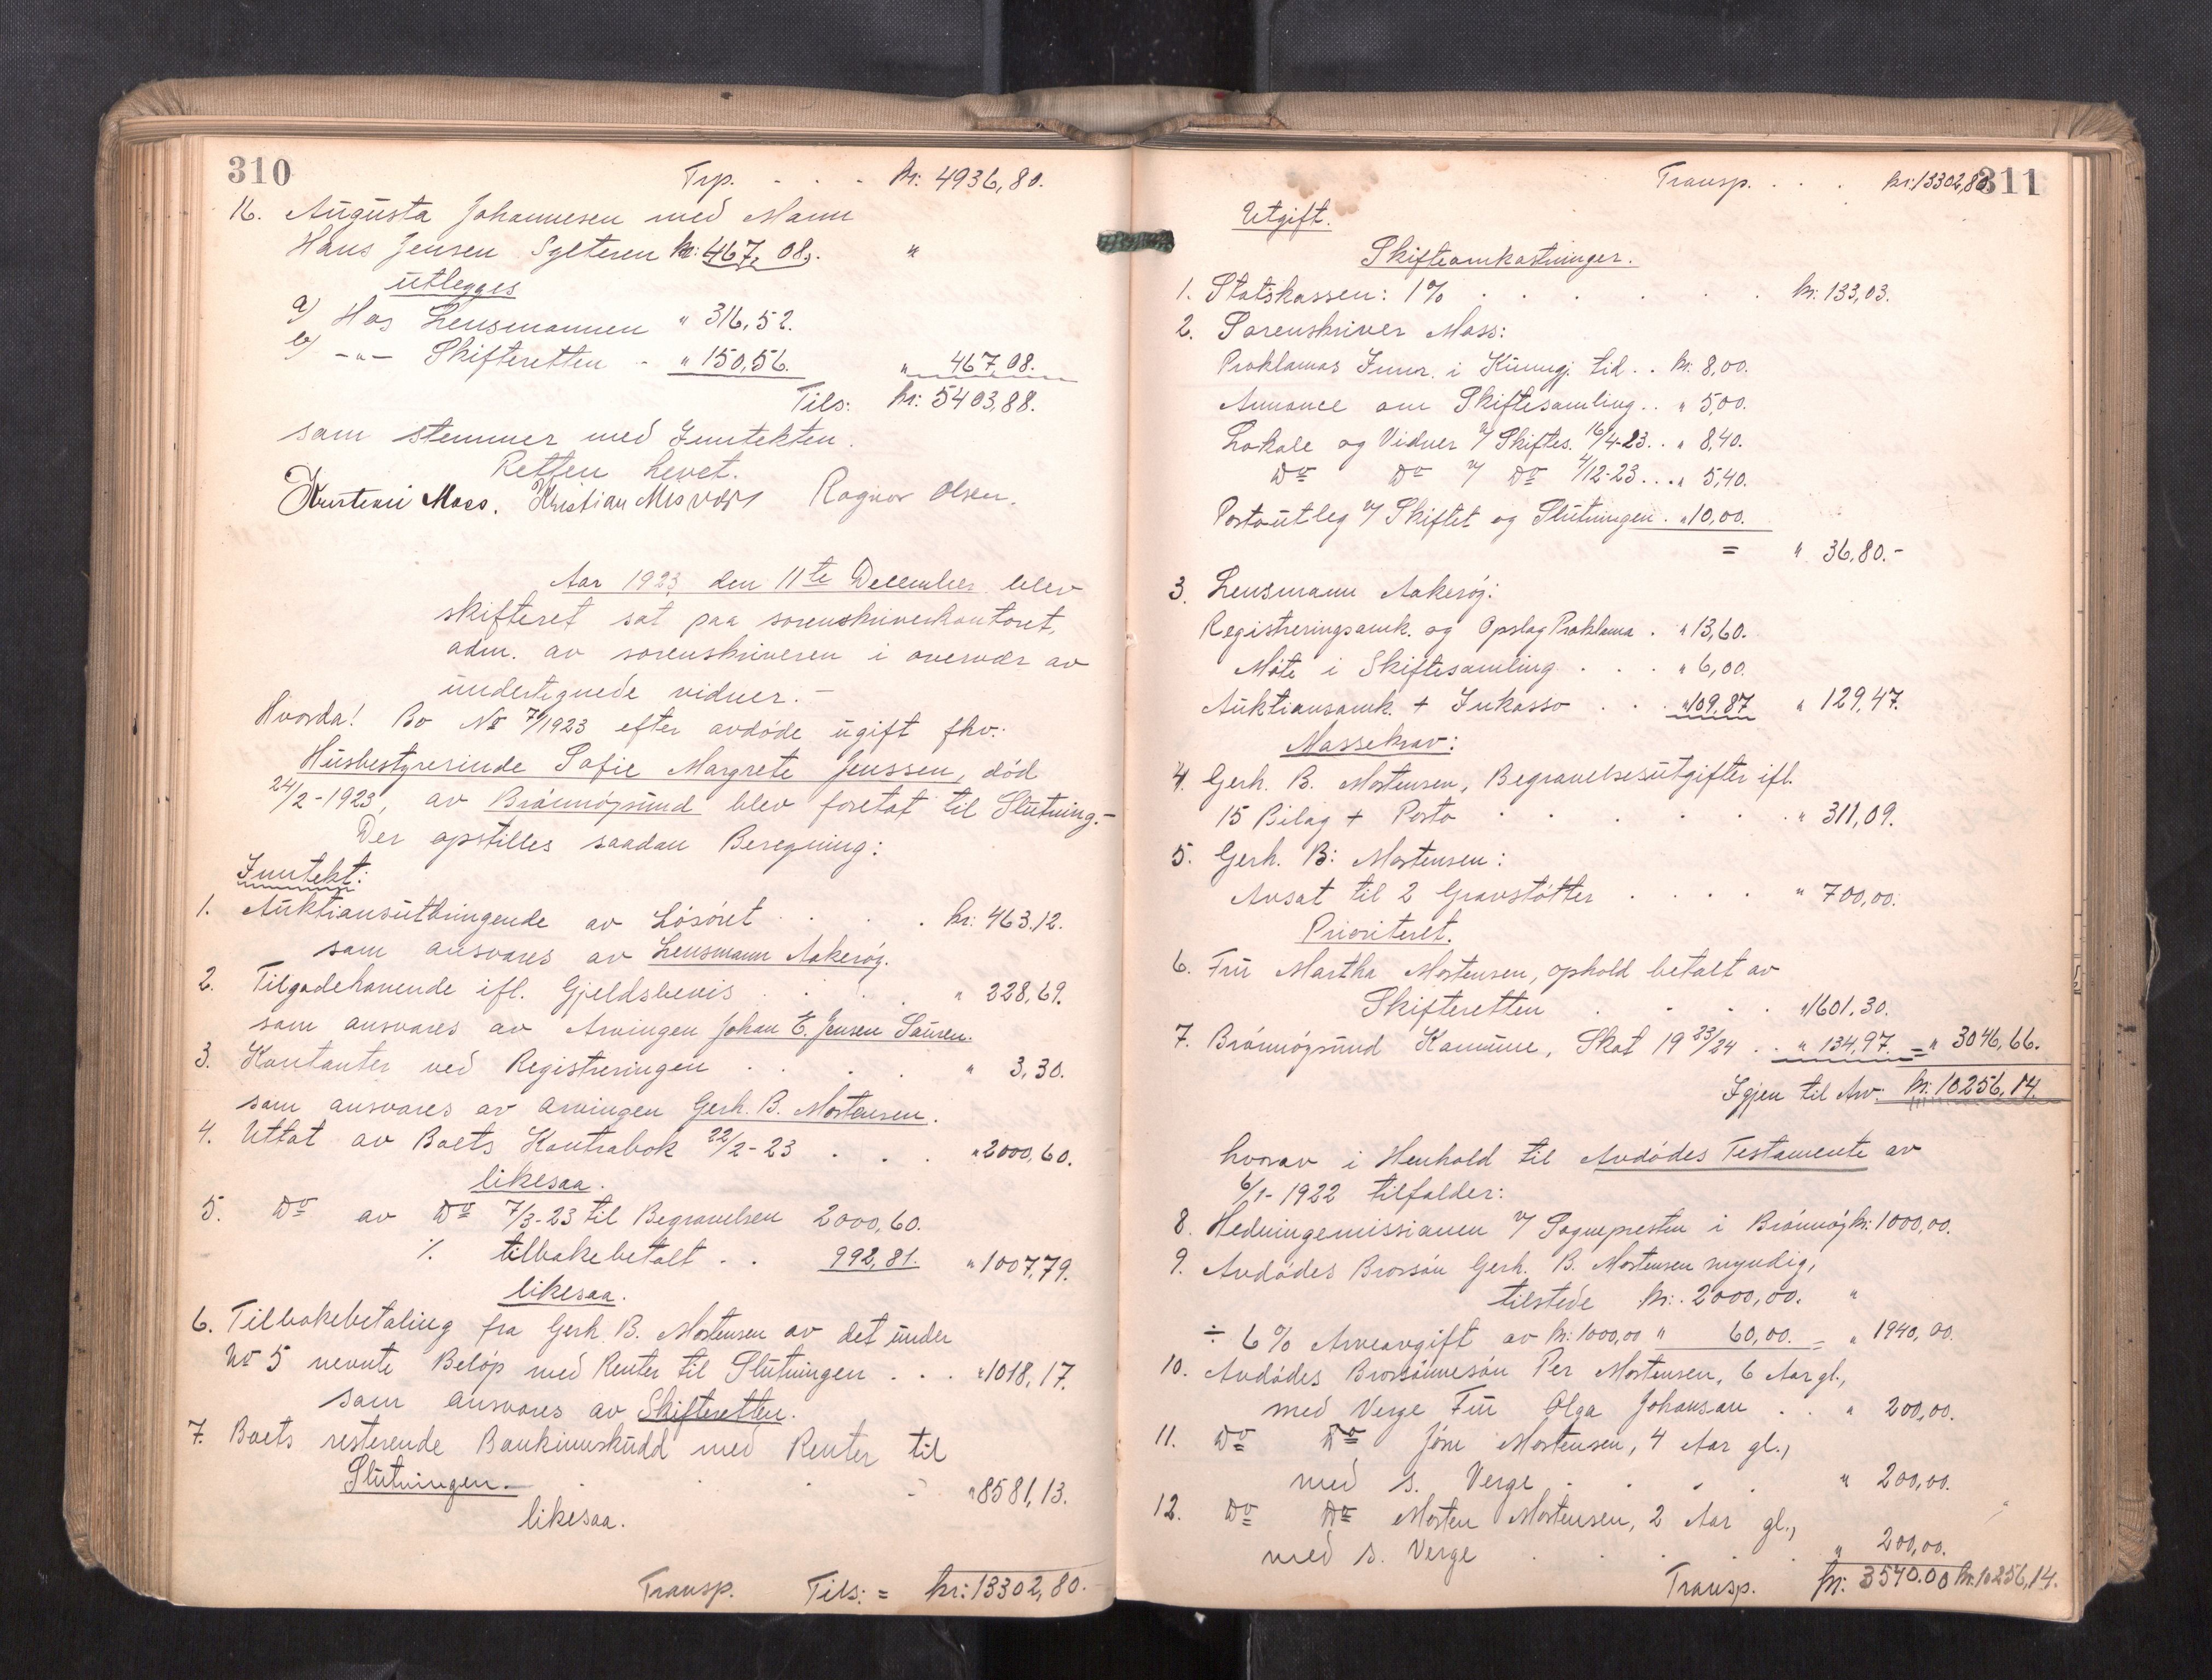 310
Trp. . . . kr. 4936,80.
16. Augusta Johannesen med Mann
Hans Jensen Sylteren kr: 467,08. "
utlegges
a) Hos Lensmannen " 316,52.
b) -"- Skifteretten - " 150,56. " 467,08.
Tils: kr: 5403,88.
som stemmer med Inntekten.
Retten hevet.
Moss. Kristian Ragnar Olsen.
Aar 1923 den 11te December blev
skifteret sat paa sorenskriverkontoret,
adm. av sorenskriveren i overvær av
undertegnede vidner.-
Hvorda! Bo No 7/1923 efter avdøde ugift fhv.
Husbestyrerinde Sofie Margrete Jenssen, død
24/2-1923, av Brønnøysund blev foretat til Slutning.-
Der opstilles saadan Beregning:
Inntekt:
1. Auktionsutbringende av Løsøret . . . kr: 463.12.
som ansvares av Lensmann Aakerøy.
2. Tilgodehavende ifl. Gjeldsbevis . . . " 228,69.
som ansvares av Arvingen Johan E. Jensen Sausen.
3. Kontanter ved Registreringen . . . . " 3,30.
som ansvares av arvingen Gerh. B. Mortensen.
4. Uttat av Boets Kontrabok 22/2-23 . . . "2000,60.
likesaa.
5. Do av Do 7/3-23 til Begravelsen 2000,60.
% tilbakebetalt . . 992,81. "1007,79.
likesaa.
6. Tilbakebetaling fra Gerh. B. Mortensen av det under
No 5 nevnte Beløp med Renter til Slutningen . . . "1018,17.
som ansvares av Skifteretten.
7. Boets resterende Bankinnskudd med Renter til
Slutningen.- . . . "8581,13.
likesaa.
Transp. Tils: = kr: 13302,80.
311
Transp. . . . kr: 13302,80
Utgift.
Skifteomkostninger.
1. Statskassen: 1% . . . . . . kr: 133,03.
2. Sorenskriver Moss:
Proklamas Innr. i Kunngj. tid . . kr: 8,00.
Annonce om Skiftesamling . . " 5,00.
Lokale og Vidner v/ Skiftes. 16/4-23 . . " 8,40.
Do Do v/ Do 4/12-23 . . . " 5,40.
Portoutleg v/ Skiftet og Slutningen . "10,00.
= " 36,80.-
3. Lensmann Aakerøy:
Registreringsomk. og Opslag Proklama . " 13,60.
Møte i Skiftesamling . . . " 6,00.
Auktionsomk. + Inkasso . . . "109,87 " 129,47.
Massekrav:
4. Gerh. B. Mortensen, Begravelsesutgifter ifl.
15 Bilag + Porto . . . . . . " 311,09.
5. Gerh. B: Mortensen:
Avsat til 2 Gravstøtter . . . . " 700,00.
Prioritert.
6. Fru Martha Mortensen, ophold betalt av
Skifteretten . . . . "1601.30.
7. Brønnøysund Kommune, Skat 19 23/24 . . " 134,97. = " 3046,66.
Igjen til Arv: kr: 10256,14.
hvorav i Henhold til Avdødes Testamente av
6/1-1922 tilfalder:
8. Hedningemissionen v/ Sognepresten i Brønnøy kr: 1000,00.
9. Avdødes Brorsøn Gerh. B. Mortensen myndig,
tilstede kr: 2000,00. "
÷ 6% Arveavgift av kr: 1000,00 " 60,00. = " 1940,00.
10. Avdødes Brorsønnesøn Per Mortensen, 6 Aar gl.,
med Verge Fru Olga Johanson . . " 200,00.
11. Do Do Jørn Mortensen, 4 Aar gl.,
med s. Verge . . . . " 200,00.
12. Do Do Morten Mortensen, 2 Aar gl.,
med s. Verge . . . . . " 200,00.
Transp. kr: 3540.00 kr. 10256,14.